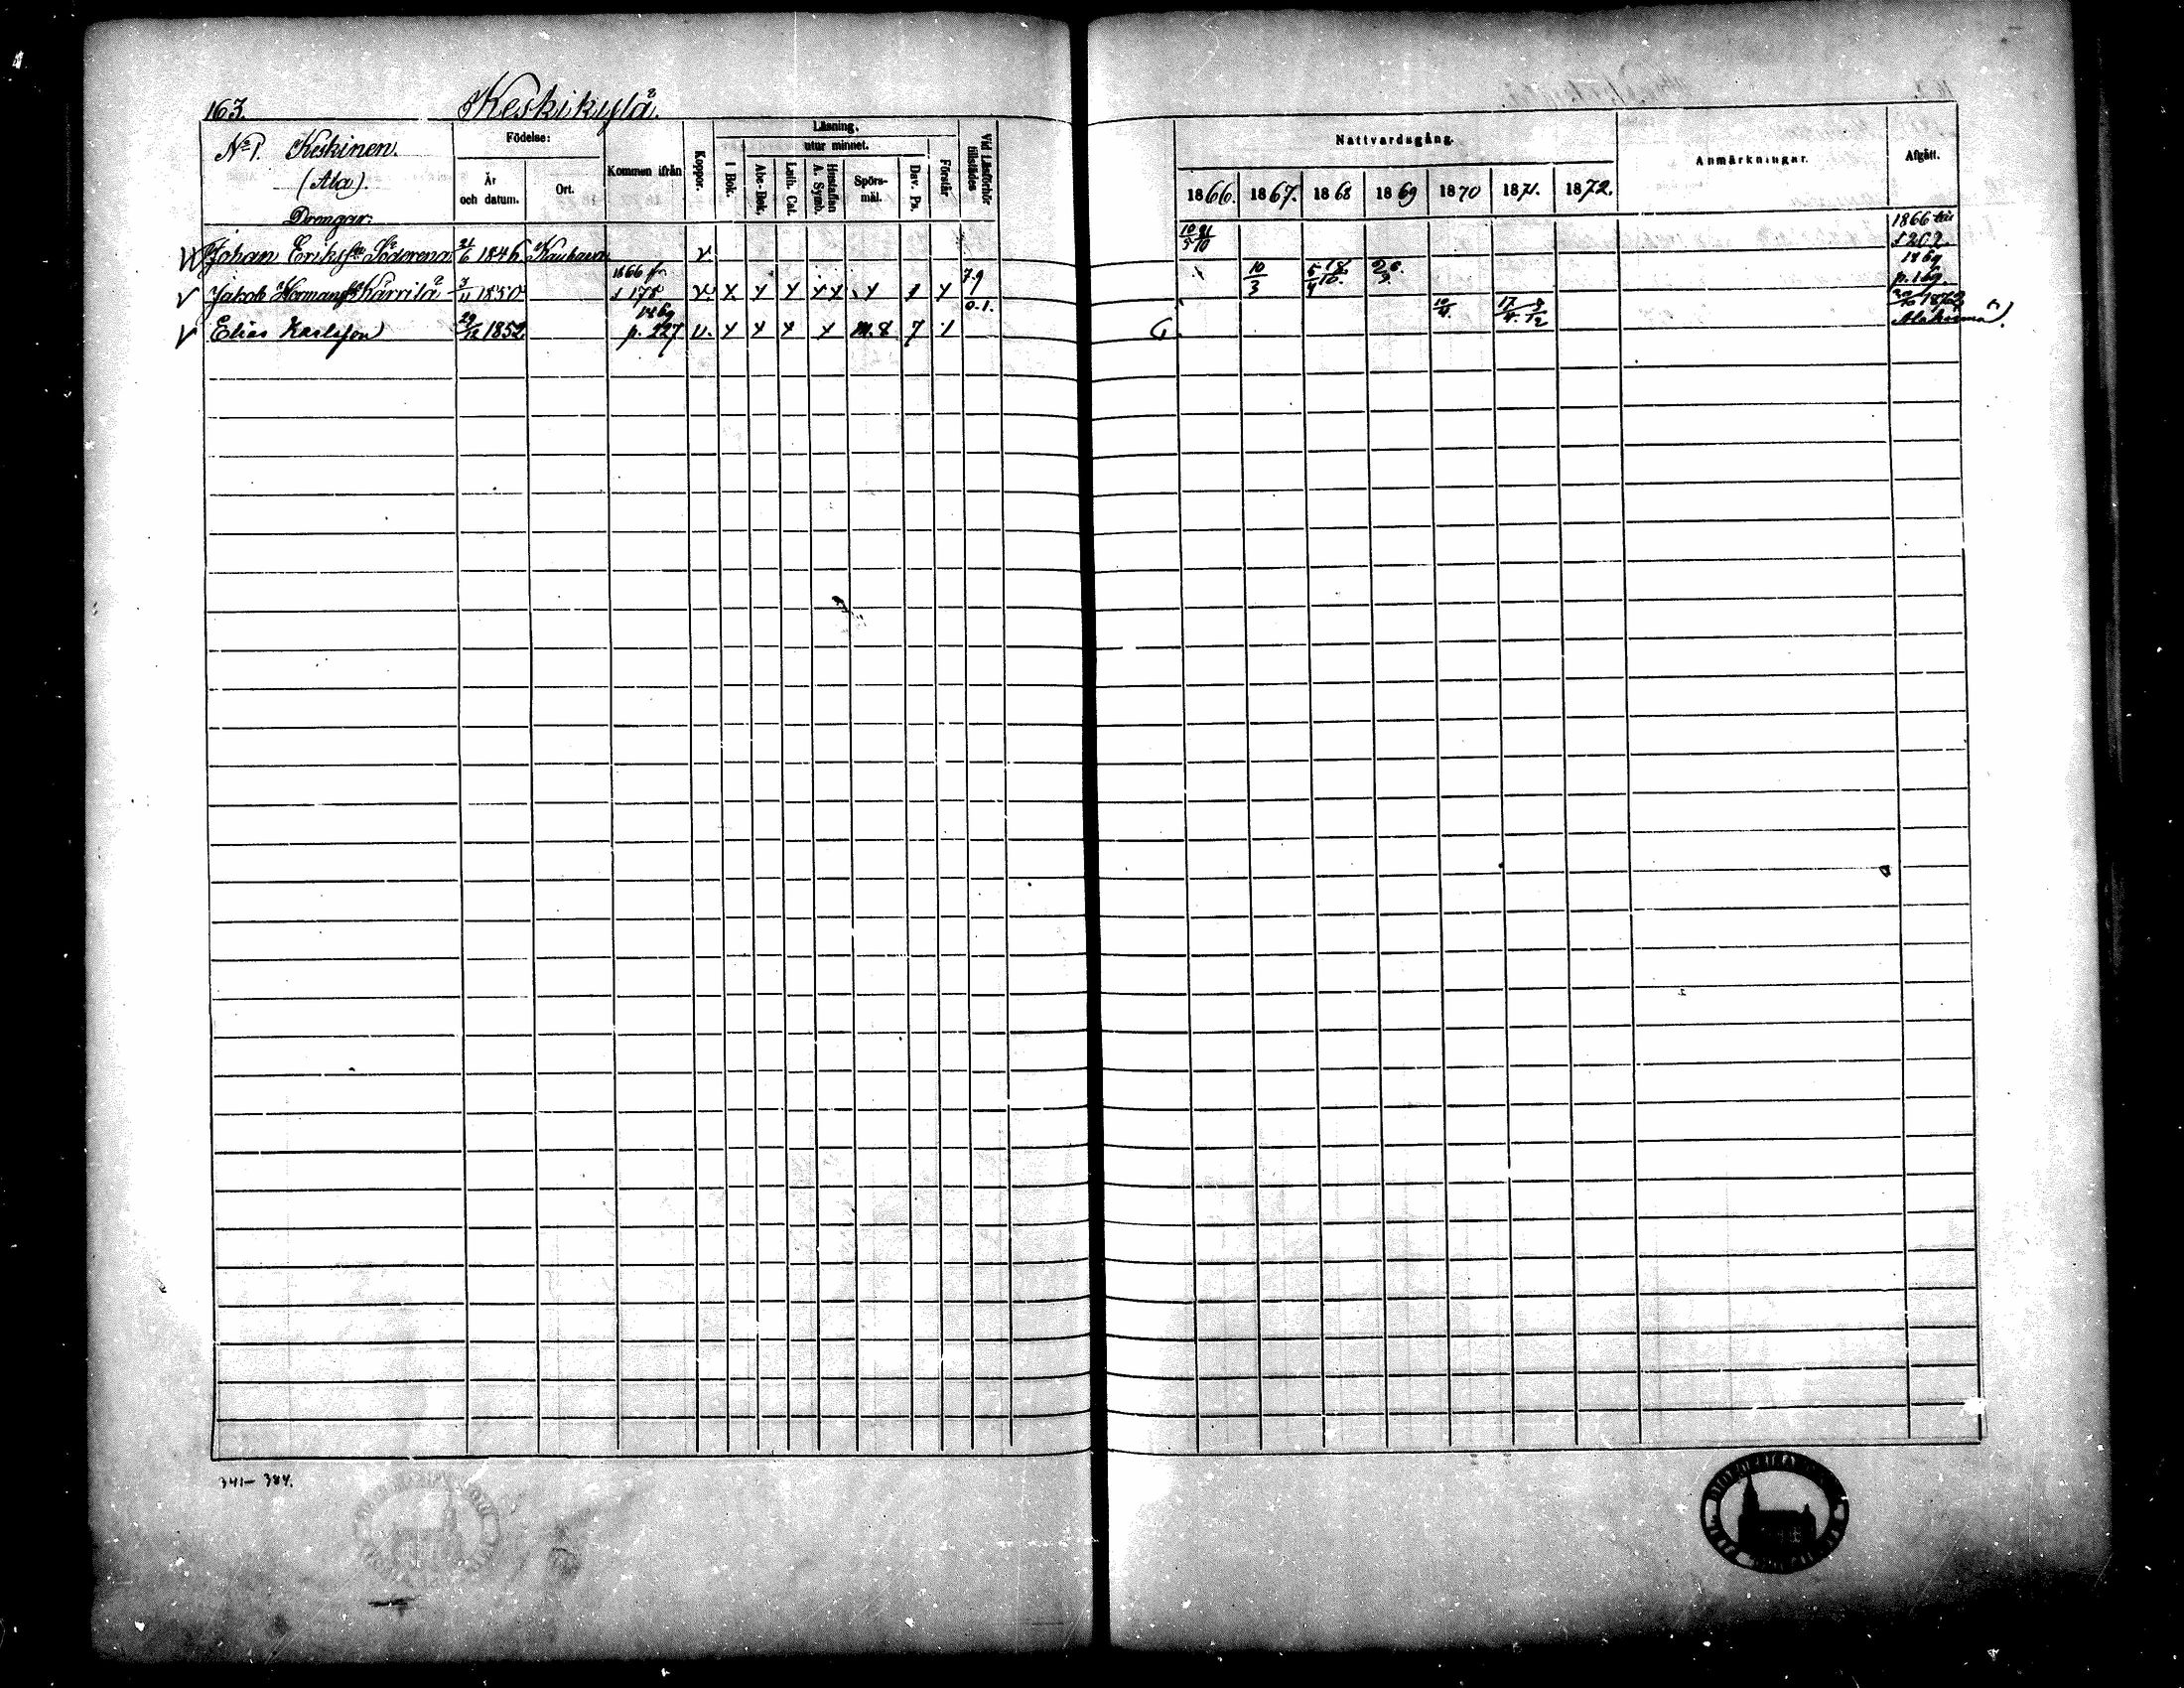 163. Keskikylä.
No 1. Keskinen.
(Ala).
Drengar:
Födelse:
År och datum.
Ort.
Kommen ifrån
Koppor.
Läsning.
I Bok.
utur minnet.
Abc-Bok.
Luth. Cat.
Hustaflan A. Symb.
Spörs-mål.
Dav. Ps.
Förstår
Vid Läsförhör tillstädes
Nattvardsgång.
1866. 1867. 1868 1869 1870 1871. 1872.
Anmärkningar.
Afgått.
Johan Eriksson 21/6 1846. Kauhava v 10/5 21/10 1866 s 202.
Jakob Hermans Kärrilä 3/11 1850 1866 fr. s 178 v. x x x x x x 1 x 7.9 10/3 5/4 18/10. 26/9. 1869 p. 169.
Elias Karlsson 29/12 1852. 1869 p. 227 v. x x x x 7 1 0.1. 10/4. 17/4. 3/12 1872
341-384.